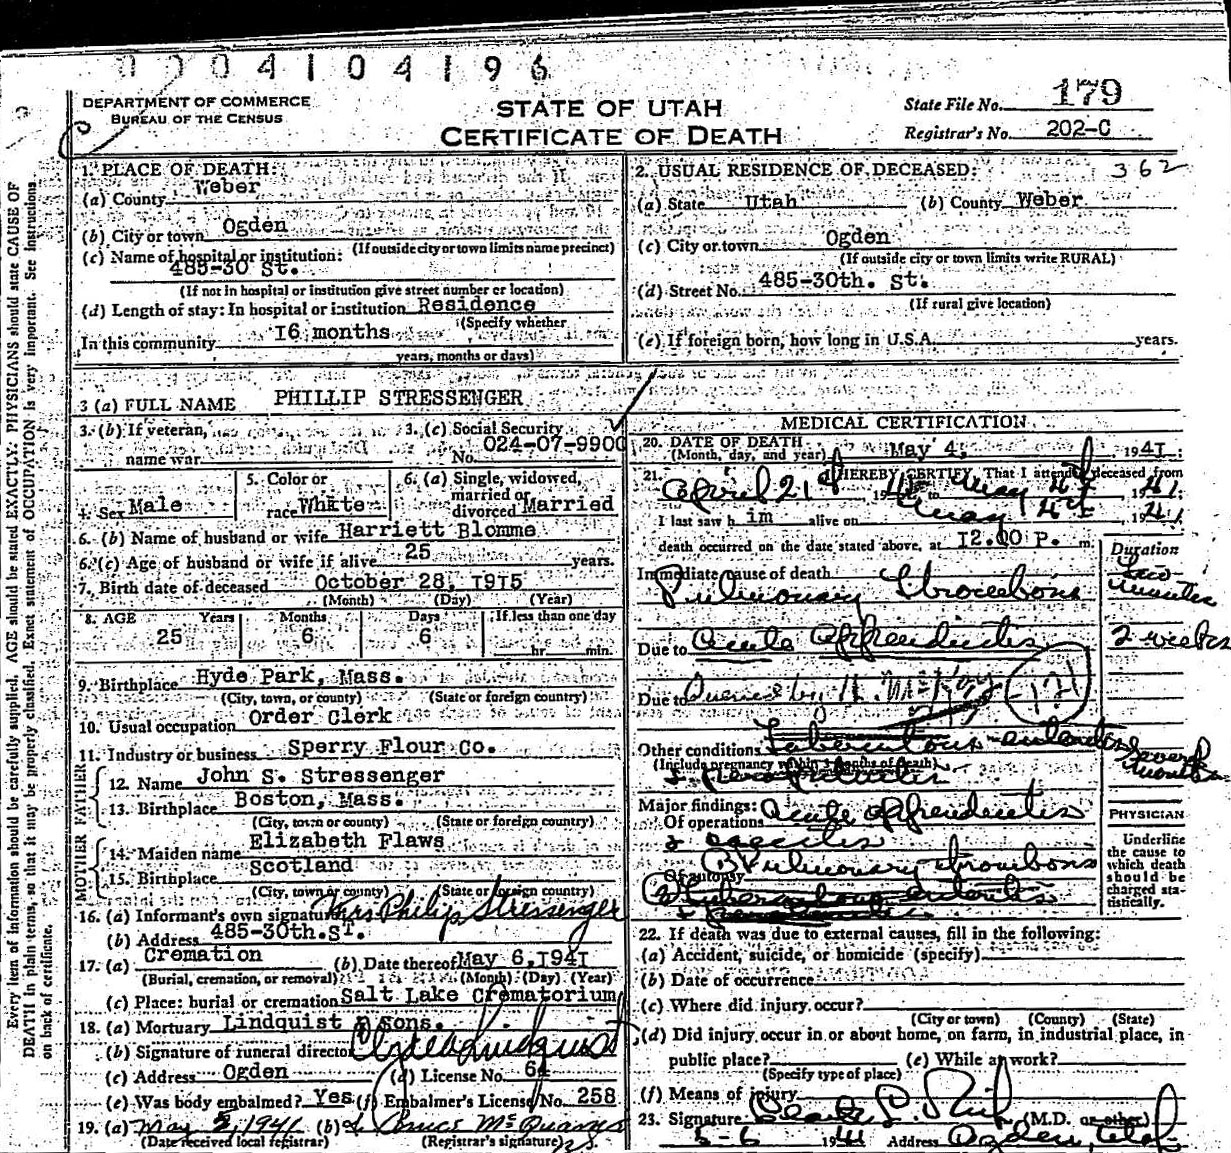 0004104196
DEPARTMENT OF COMMERCE
BUREAU OF THE CENSUS
STATE OF UTAH
CERTIFICATE OF DEATH
State File No. 179
Registrar's No. 202-C
362
Every item of information should be carefully supplied. AGE should be stated EXACTLY. PHYSICIANS should state CAUSE OF
DEATH in plain terms, so that it may be properly classified. Exact statement of OCCUPATION is very important. See instructions
on back of certificate.
1. PLACE OF DEATH:
(a) County Weber
(b) City or town Ogden
(If outside city or town limits name precinct)
(c) Name of hospital or institution:
485-30 St.
(If not in hospital or institution give street number or location)
(d) Length of stay: In hospital or institution Residence
(Specify whether
In this community 16 months
years, months or days)
2. USUAL RESIDENCE OF DECEASED:
(a) State Utah (b) County Weber
(c) City or town Ogden
(If outside city or town limits write RURAL)
(d) Street No. 485-30th. St.
(If rural give location)
(e) If foreign born, how long in U.S.A. years.
3 (a) FULL NAME PHILLIP STRESSENGER
3. (b) If veteran,
name war
3. (c) Social Security
No. 024-07-9900
4. Sex Male
5. Color or
race White
6. (a) Single, widowed,
married or
divorced Married
6. (b) Name of husband or wife Harriett Blomme
6. (c) Age of husband or wife if alive 25 years.
7. Birth date of deceased October 28, 1915
(Month) (Day) (Year)
8. AGE Years Months Days If less than one day
25 6 6 hr. min.
9. Birthplace Hyde Park, Mass.
(City, town, or county) (State or foreign country)
10. Usual occupation Order Clerk
11. Industry or business Sperry Flour Co.
FATHER
12. Name John S. Stressenger
13. Birthplace Boston, Mass.
(City, town or county) (State or foreign country)
MOTHER
14. Maiden name Elizabeth Flaws
15. Birthplace Scotland
(City, town or county) (State or foreign country)
16. (a) Informant's own signature Mrs. Philip Stressenger
(b) Address 485-30th.ST.
17. (a) Cremation (b) Date thereof May 6, 1941
(Burial, cremation, or removal) (Month) (Day) (Year)
(c) Place: burial or cremation Salt Lake Crematorium
18. (a) Mortuary Lindquist n sons.
(b) Signature of funeral director Clyde Lindquist
(c) Address Ogden (d) License No. 64
(e) Was body embalmed? Yes (f) Embalmer's License No. 258
19. (a) May 5, 1941 (b) Bruce McQuarrie
(Date received local registrar) (Registrar's signature)
MEDICAL CERTIFICATION
20. DATE OF DEATH
(Month, day, and year) May 4, 1941
21. I HEREBY CERTIFY, That I attended deceased from
April 21st 1941 to May 4th 1941.
I last saw him alive on May 4th, 1941
death occurred on the date stated above, at 12.00 P. m.
Immediate cause of death
Duration
Pulmonary Thrombosis few minutes
Due to Acute Appendicitis 2 weeks
Due to
Other conditions Tuberculous enteritis
(Include pregnancy within 3 months of death)
Several months
Major findings:
Of operations Acute appendicitis
PHYSICIAN
Underline
the cause to
which death
should be
charged sta-
tistically.
Of autopsy Pulmonary thrombosis
Tuberculous enteritis
22. If death was due to external causes, fill in the following:
(a) Accident, suicide, or homicide (specify)
(b) Date of occurrence
(c) Where did injury occur?
(City or town) (County) (State)
(d) Did injury occur in or about home, on farm, in industrial place, in
public place? (e) While at work?
(Specify type of place)
(f) Means of injury
23. Signature (M.D. or other)
5-6 1941 Address Ogden, Utah